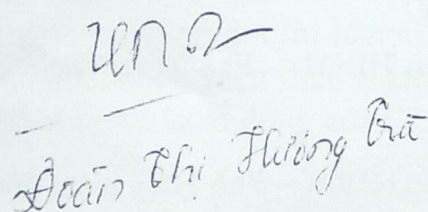 Đoàn Thị Hương Trà